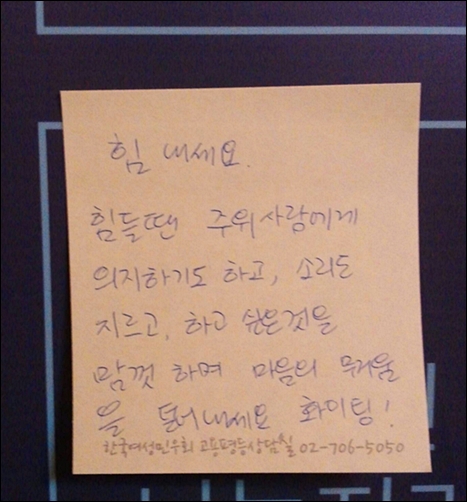 힘 내세요.
힘들땐 주위사람에게
의지하기도 하고, 소리도
지르고, 하고 싶은것을
맘껏 하며 마음의 무거움
을 덜어내세요 화이팅!
한국여성민우회 고용평등상담실 02-706-5050